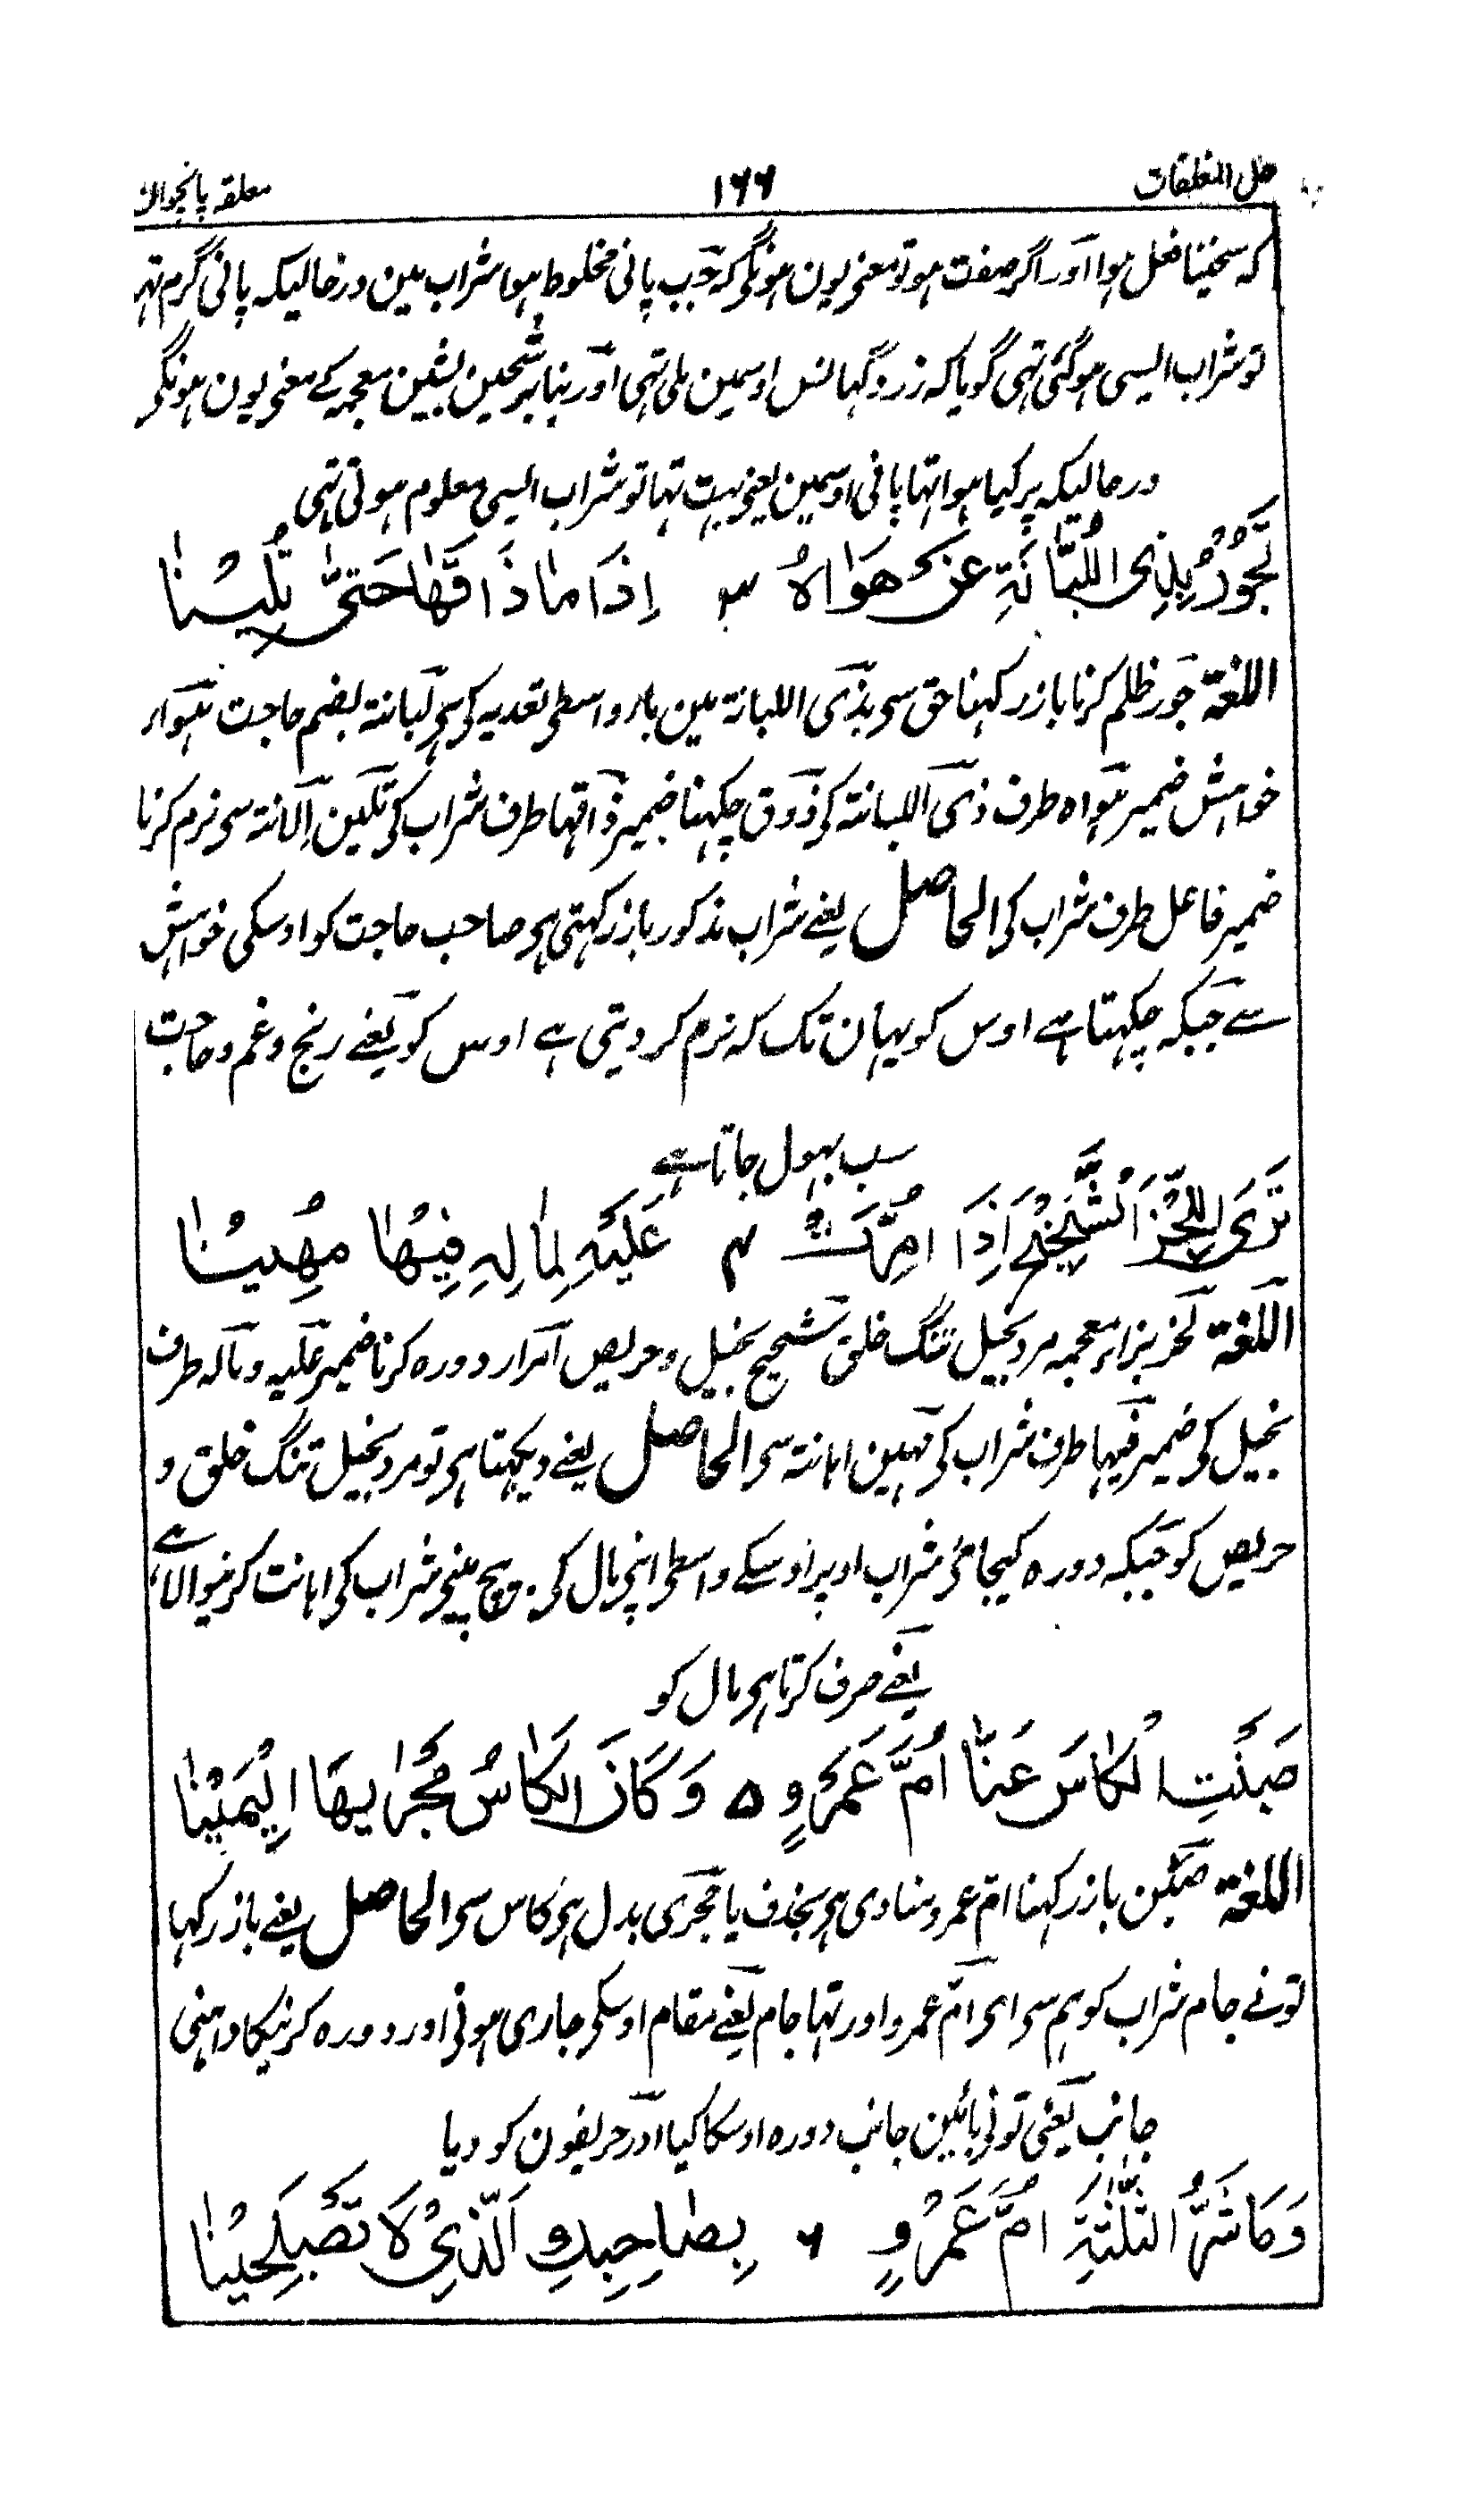 حل المغلقات ۱۶۶ معلقہ پانچوان
کہ سخینا فعل ہوا اور اگر صفت ہو تو معنی یون ہونگی کہ جب پانی مخلوط ہوا شراب مین درحالیکہ پانی گرم تہا
تو شراب ایسی ہوگئی تہی گویا کہ زرد گہانس اوسمین ملی تہی اور بنا بر شحین بشین معجمہ کے معنی یون ہونگی
درحالیکہ پر کیا ہوا تہا پانی اوسمین یعنی بہت تہا تو شراب ایسی معلوم ہوتی تہی
تَجُوْرُ بِذِی اللُّبَانَةِ عَنْ هَوَاهُ ۳ اِذَا مَا ذَاقَهَا حَتّٰی تُلِیْنَا
اللغة جَور ظلم کرنا باز رکہنا حق سی بذی اللبانة مین با واسطی تعدیہ کی ہی لبانة بضم حاجت ہَواء
خواہش ضمیر ہواہ طرف ذی اللبانة کی ذَوق چکہنا ضمیر ذاقہا طرف شراب کی تلین اِلَانة سی نرم کرنا
ضمیر فاعل طرف شراب کی الحاصل یعنے شراب مذکور باز رکہتی ہی صاحب حاجت کو اوسکی خواہش
سے جبکہ چکہتا ہے اوس کو یہان تک کہ نرم کر دیتی ہے اوس کو یعنے رنج و غم و حاجت
سب بہول جاتا ہے
تَرَی اللَّحِزَ الشَّحِیْحَ اِذَا اُمِرَّتْ ۴ عَلَیْهِ لِمَالِهٖ فِیْهَا مُهِیْنَا
اللغة لحز بزاء معجمہ مرد بخیل تنگ خلق شحیح بخیل و حریص اِمرار دورہ کرنا ضمیر علیہ و مالہ طرف
بخیل کی ضمیر فیہا طرف شراب کی مہین اہانة سی الحاصل یعنے دیکہتا ہی تو مرد بخیل تنگ خلق و
حریص کو جبکہ دورہ کیجائی شراب اوپر اوسکے واسطی اپنی مال کی بیچ پینی شراب کی اہانت کرنیوالا ہے
یعنے صرف کرتا ہی مال کو
صَبَنْتِ الْکَاسَ عَنَّا اُمَّ عَمْرٍو ۵ وَکَانَ الْکَاسُ مَجْرٰیهَا الْیَمِیْنَا
اللغة صَبن باز رکہنا ام عمرو منادی ہی بحذف یا مجری بدل ہی کاس سی الحاصل یعنے باز رکہا
تونے جام شراب کو ہم سی ای ام عمرو اور تہا جام یعنے مقام اوسکی جاری ہونی اور دورہ کرنیکا داہنی
جانب یعنی تونی بائین جانب دورہ اوسکا کیا اور حریفون کو دیا
وَمَا شَرُّ الثَّلٰثَةِ اُمَّ عَمْرٍو ۶ بِصَاحِبِكِ الَّذِیْ لَا تَصْبَحِیْنَا